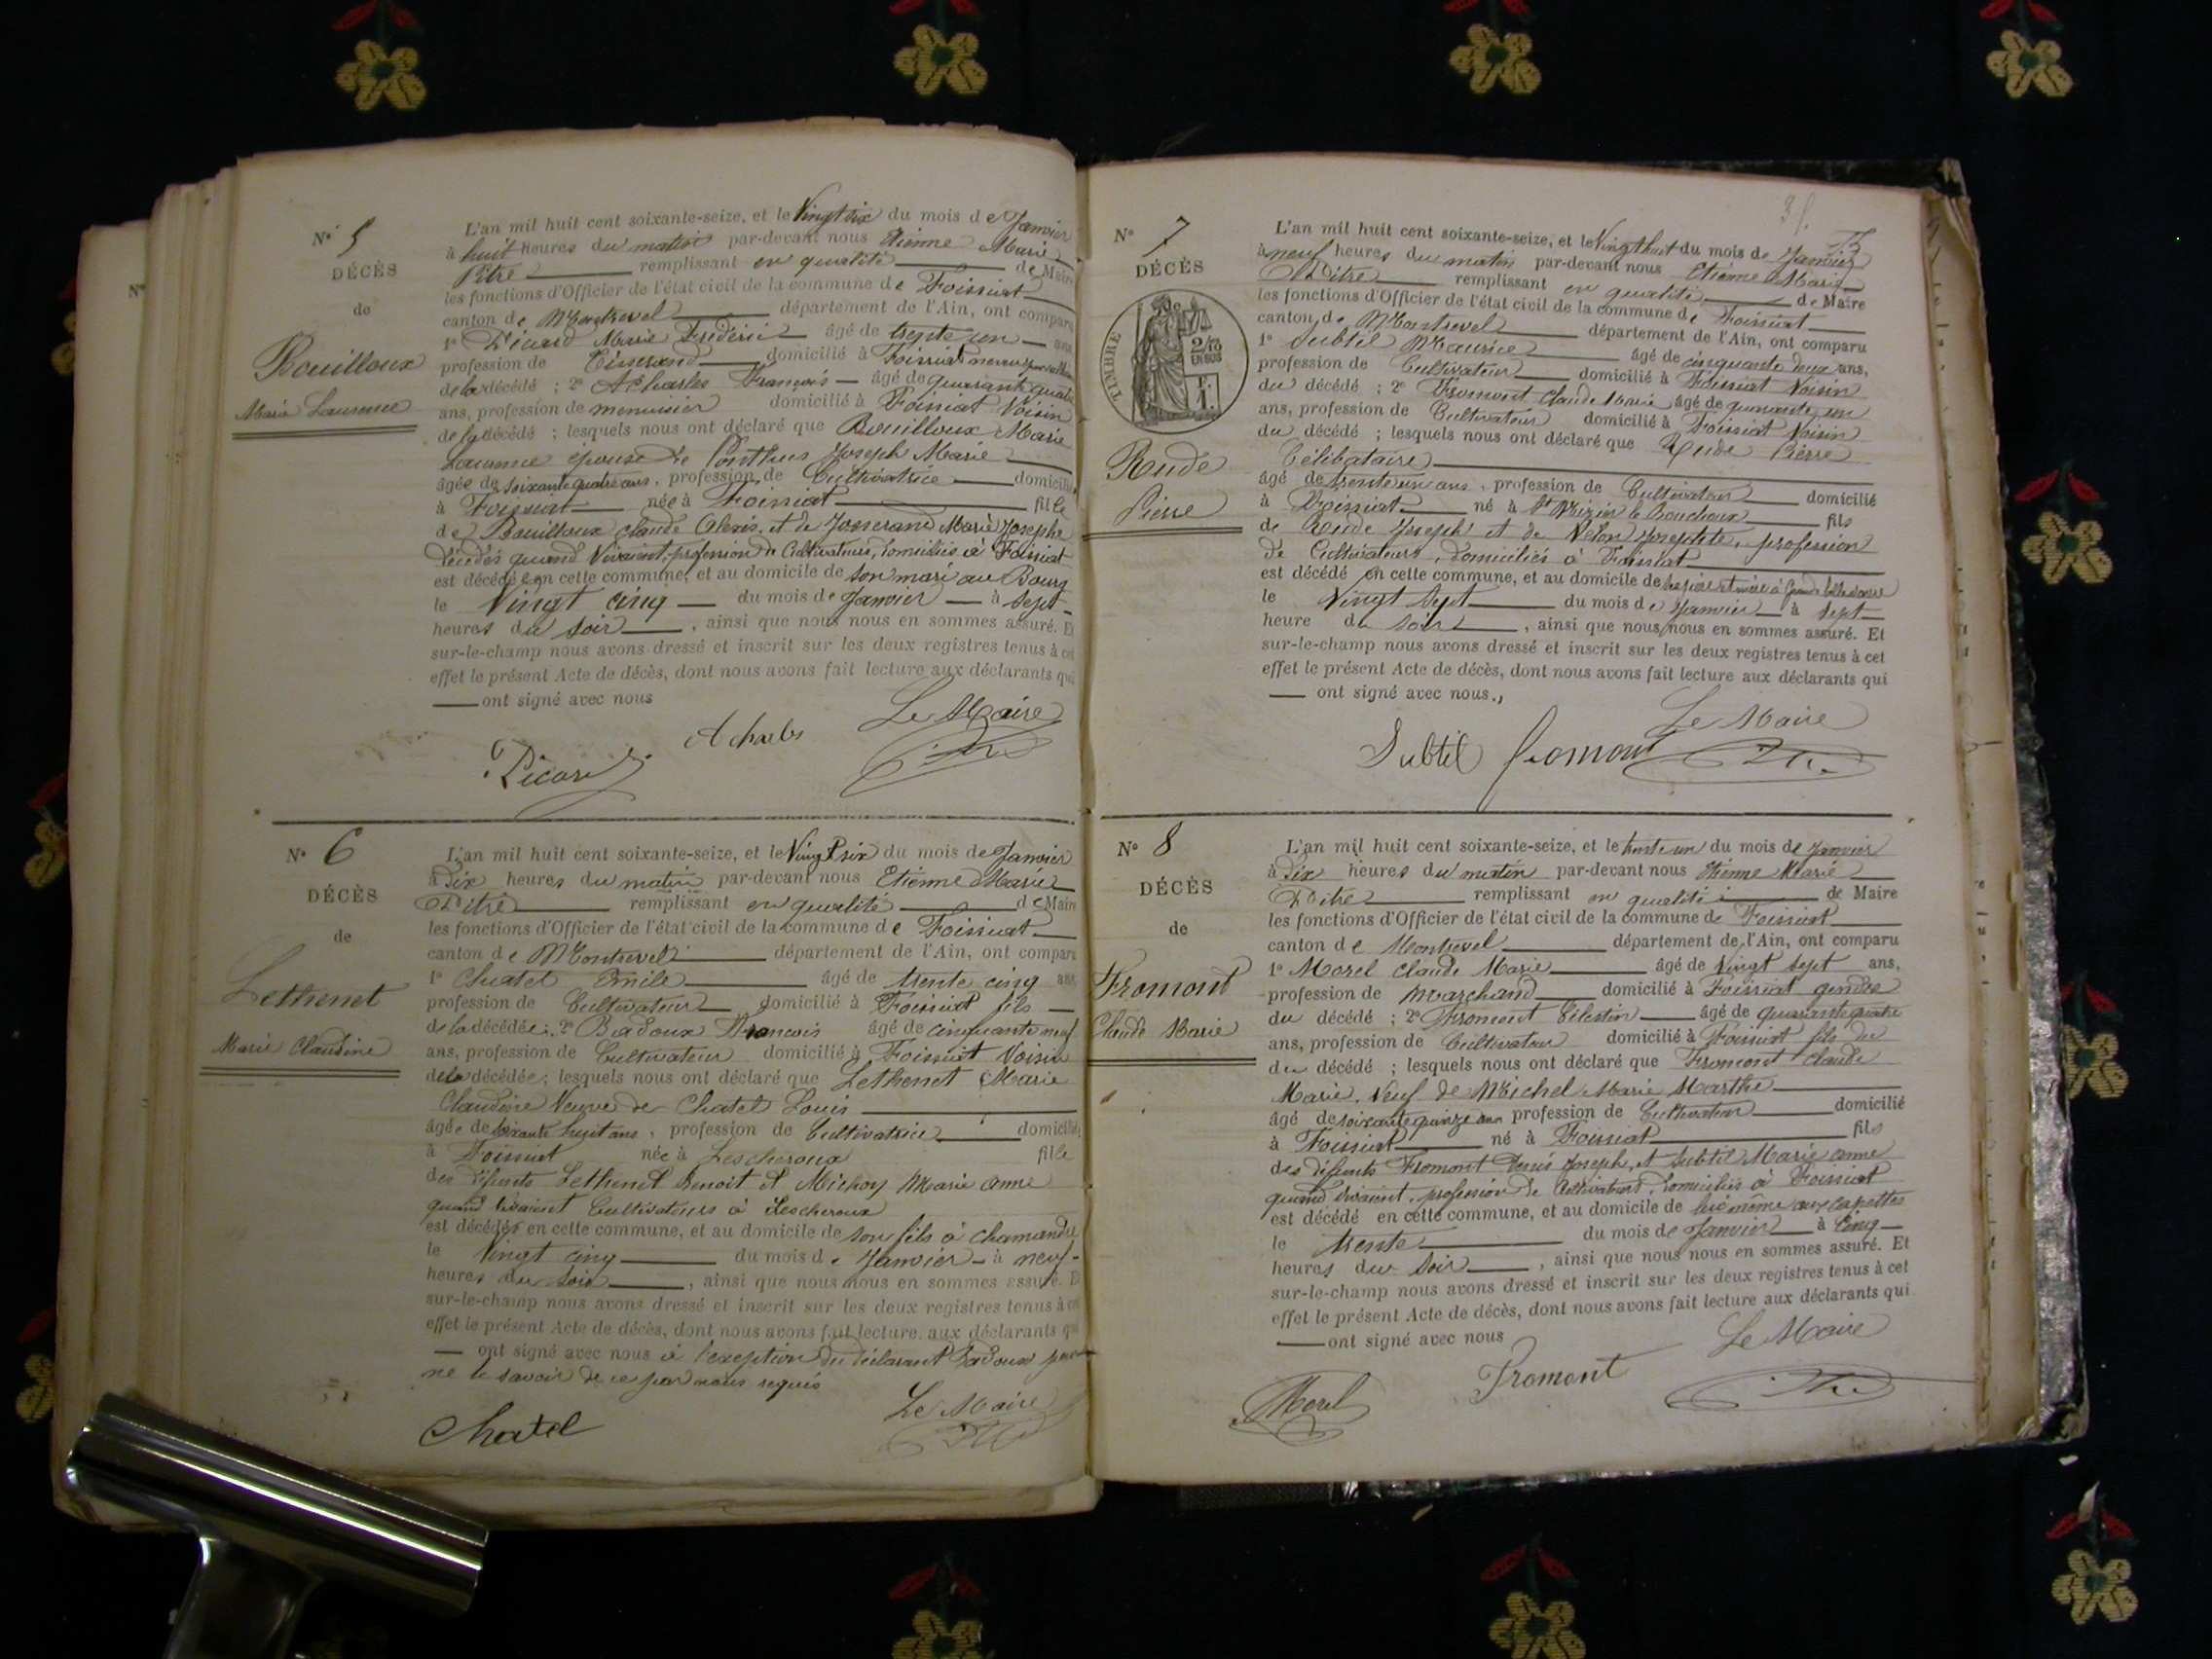 N° 5
DÉCÈS
de
Bouilloux
Marie Laurence
L'an mil huit cent soixante-seize, et le Vingt six du mois de Janvier
à huit heures du matin par-devant nous Etienne Marie
Pitre remplissant en qualité de Maire
les fonctions d'Officier de l'état civil de la commune de Foissiat
canton de Montrevel département de l'Ain, ont comparu
1° Picard Marie Frédéric âgé de trente un ans
profession de Tisserand domicilié à Foissiat
de la décédé ; 2° Acharles François âgé de quarante quatre
ans, profession de menuisier domicilié à Foissiat Voisin
de la décédé ; lesquels nous ont déclaré que Bouilloux Marie
Laurence épouse de Ponthus Joseph Marie
âgée de soixante quatre ans, profession de Cultivatrice domicilié
à Foissiat née à Foissiat fille
de Bouilloux Claude Alexis et de Josserand Marie Josephe
décédés quand Vivaient, profession de Cultivateurs, domiciliés à Foissiat
est décédé en cette commune, et au domicile de son mari au Bourg
le Vingt cinq du mois de Janvier à sept
heures du soir, ainsi que nous nous en sommes assuré. Et
sur-le-champ nous avons dressé et inscrit sur les deux registres tenus à cet
effet le présent Acte de décès, dont nous avons fait lecture aux déclarants qui
ont signé avec nous
Le Maire
Acharles
Picard
N° 6
DÉCÈS
de
Lethenet
Marie Claudine
L'an mil huit cent soixante-seize, et le Vingt six du mois de Janvier
à Dix heures du matin par-devant nous Etienne Marie
Pitre remplissant en qualité de Maire
les fonctions d'Officier de l'état civil de la commune de Foissiat
canton de Montrevel département de l'Ain, ont comparu
1° Chatel Emile âgé de trente cinq ans
profession de Cultivateur domicilié à Foissiat fils
de la décédée ; 2° Badoux François âgé de cinquante neuf
ans, profession de Cultivateur domicilié à Foissiat Voisin
de la décédée ; lesquels nous ont déclaré que Lethenet Marie
Claudine Veuve de Chatel Louis
âgée de soixante huit ans, profession de Cultivatrice domicilié
à Foissiat née à Lescheroux fille
des défunts Lethenet Benoit et Michoy Marie anne
quand vivaient Cultivateurs à Lescheroux
est décédée en cette commune, et au domicile de son fils à Chamandu
le Vingt cinq du mois de Janvier à neuf
heures du soir, ainsi que nous nous en sommes assuré. Et
sur-le-champ nous avons dressé et inscrit sur les deux registres tenus à cet
effet le présent Acte de décès, dont nous avons fait lecture aux déclarants qui
ont signé avec nous à l'exception du déclarant Badoux pour
ne le savoir de ce par nous requis
Le Maire
Chatel
N° 7
DÉCÈS
TIMBRE
2/10
EN SUS
Rude
Pierre
L'an mil huit cent soixante-seize, et le Vingt huit du mois de Janvier
à neuf heures du matin par-devant nous Etienne Marie
Pitre remplissant en qualité de Maire
les fonctions d'Officier de l'état civil de la commune de Foissiat
canton de Montrevel département de l'Ain, ont comparu
1° Subtil Maurice âgé de cinquante deux ans,
profession de Cultivateur domicilié à Foissiat Voisin
du décédé ; 2° Fromont Claude Marie âgé de quarante un
ans, profession de Cultivateur domicilié à Foissiat Voisin
du décédé ; lesquels nous ont déclaré que Rude Pierre
Célibataire
âgé de trente un ans, profession de Cultivateur domicilié
à Foissiat né à St Nizier le Bouchoux fils
de Rude Joseph et de Josephte, profession
de Cultivateurs, domiciliés à Foissiat
est décédé en cette commune, et au domicile de ses père et mère à
le Vingt Sept du mois de Janvier à sept
heure du soir, ainsi que nous nous en sommes assuré. Et
sur-le-champ nous avons dressé et inscrit sur les deux registres tenus à cet
effet le présent Acte de décès, dont nous avons fait lecture aux déclarants qui
ont signé avec nous.,
Le Maire
Subtil fromont
N° 8
DÉCÈS
de
Fromont
Claude Marie
L'an mil huit cent soixante-seize, et le trente un du mois de Janvier
à Dix heures du matin par-devant nous Etienne Marie
Pitre remplissant en qualité de Maire
les fonctions d'Officier de l'état civil de la commune de Foissiat
canton de Montrevel département de l'Ain, ont comparu
1° Morel Claude Marie âgé de Vingt sept ans,
profession de Marchand domicilié à Foissiat gendre
du décédé ; 2° Fromont Célestin âgé de quarante quatre
ans, profession de Cultivateur domicilié à Foissiat fils du
du décédé ; lesquels nous ont déclaré que Fromont Claude
Marie, Veuf de Michel Marie Marthe
âgé de soixante quinze ans profession de Cultivateur domicilié
à Foissiat né à Foissiat fils
des défunts Fromont Denis Joseph, et Subtil Marie anne
quand vivaient, profession de Cultivateurs, domiciliés à Foissiat
est décédé en cette commune, et au domicile de lui même aux Carrettes
le trente du mois de Janvier à Cinq
heures du soir, ainsi que nous nous en sommes assuré. Et
sur-le-champ nous avons dressé et inscrit sur les deux registres tenus à cet
effet le présent Acte de décès, dont nous avons fait lecture aux déclarants qui
ont signé avec nous
Le Maire
Fromont
Morel